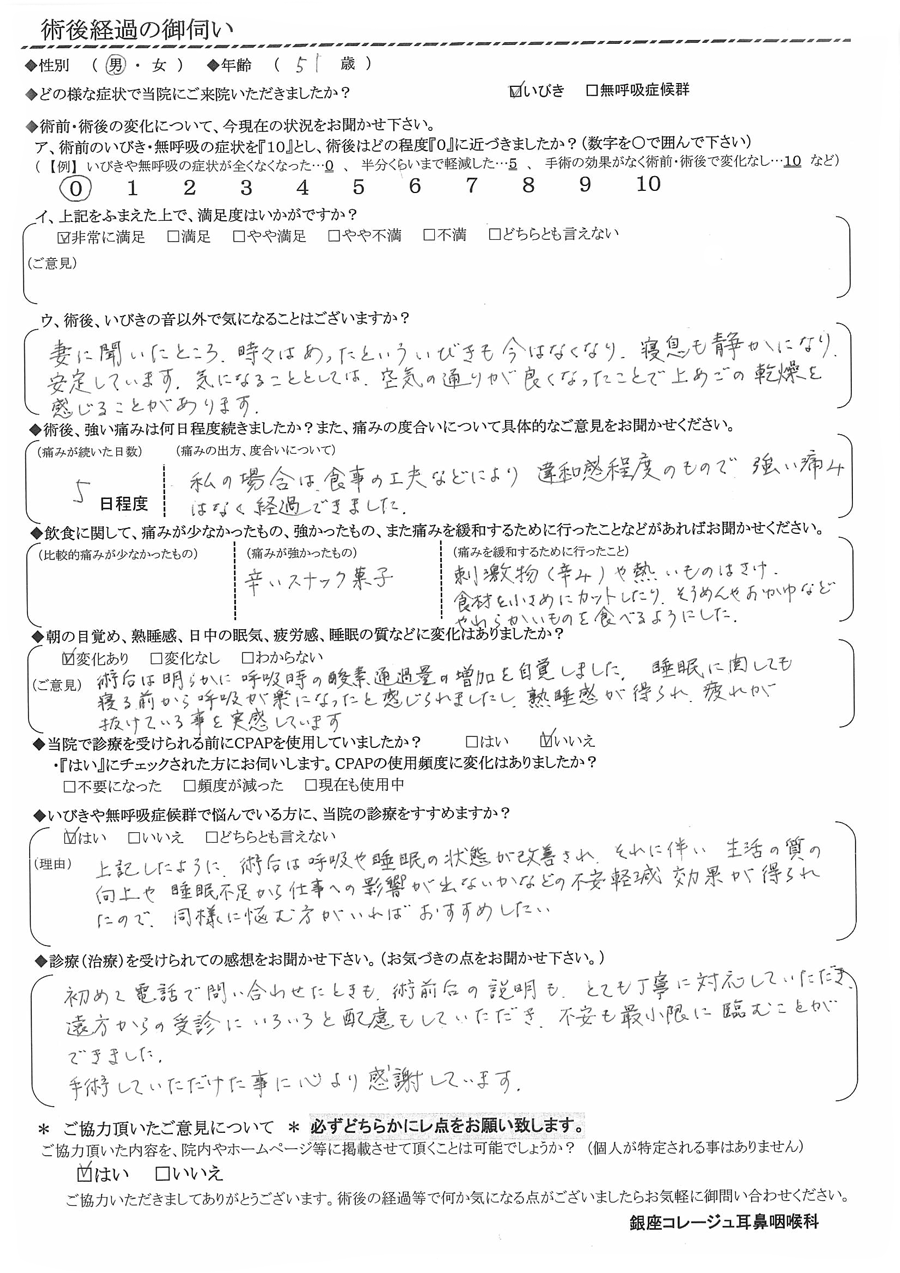 術後経過の御伺い
◆性別 ( 男 ・ 女 ) ◆年齢 ( 51 歳 )
◆どの様な症状で当院にご来院いただきましたか? ☑いびき □無呼吸症候群
◆術前・術後の変化について、今現在の状況をお聞かせ下さい。
ア、術前のいびき・無呼吸の症状を『10』とし、術後はどの程度『0』に近づきましたか?(数字を〇で囲んで下さい)
(【例】いびきや無呼吸の症状が全くなくなった…0 、 半分くらいまで軽減した…5 、 手術の効果がなく術前・術後で変化なし…10 など)
0 1 2 3 4 5 6 7 8 9 10
イ、上記をふまえた上で、満足度はいかがですか?
☑非常に満足 □満足 □やや満足 □やや不満 □不満 □どちらとも言えない
(ご意見)
ウ、術後、いびきの音以外で気になることはございますか?
妻に聞いたところ、時々はあったといういびきも今はなくなり、寝息も静かになり、
安定しています。気になることとしては、空気の通りが良くなったことで上あごの乾燥を
感じることがあります。
◆術後、強い痛みは何日程度続きましたか?また、痛みの度合いについて具体的なご意見をお聞かせください。
(痛みが続いた日数) (痛みの出方、度合いについて)
5 日程度 私の場合は、食事の工夫などにより 違和感程度のもので 強い痛み
はなく経過できました。
◆飲食に関して、痛みが少なかったもの、強かったもの、また痛みを緩和するために行ったことなどがあればお聞かせください。
(比較的痛みが少なかったもの) (痛みが強かったもの) (痛みを緩和するために行ったこと)
辛いスナック菓子 刺激物(辛み)や熱いものはさけ、
食材を小さめにカットしたり、そうめんやおかゆなど
やわらかいものを食べるようにした。
◆朝の目覚め、熟睡感、日中の眠気、疲労感、睡眠の質などに変化はありましたか?
☑変化あり □変化なし □わからない
(ご意見) 術后は明らかに呼吸時の酸素通過量の増加を自覚しました。 睡眠に関しても
寝る前から呼吸が楽になったと感じられましたし、熟睡感が得られ、疲れが
抜けている事を実感しています
◆当院で診療を受けられる前にCPAPを使用していましたか? □はい ☑いいえ
・『はい』にチェックされた方にお伺いします。CPAPの使用頻度に変化はありましたか?
□不要になった □頻度が減った □現在も使用中
◆いびきや無呼吸症候群で悩んでいる方に、当院の診療をすすめますか?
☑はい □いいえ □どちらとも言えない
(理由) 上記したように、術后は呼吸や睡眠の状態が改善され、それに伴い 生活の質の
向上や 睡眠不足から仕事への影響が出ないかなどの不安軽減 効果が得られ
たので、同様に悩む方がいればおすすめしたい
◆診療(治療)を受けられての感想をお聞かせ下さい。(お気づきの点をお聞かせ下さい。)
初めて電話で問い合わせたときも、術前后の説明も、とても丁寧に対応していただき、
遠方からの受診にいろいろと配慮もしていただき、不安も最小限に臨むことが
できました。
手術していただけた事に心より感謝しています。
＊ ご協力頂いたご意見について ＊ 必ずどちらかにレ点をお願い致します。
ご協力頂いた内容を、院内やホームページ等に掲載させて頂くことは可能でしょうか? (個人が特定される事はありません)
☑はい □いいえ
ご協力いただきましてありがとうございます。術後の経過等で何か気になる点がございましたらお気軽に御問い合わせください。
銀座コレージュ耳鼻咽喉科